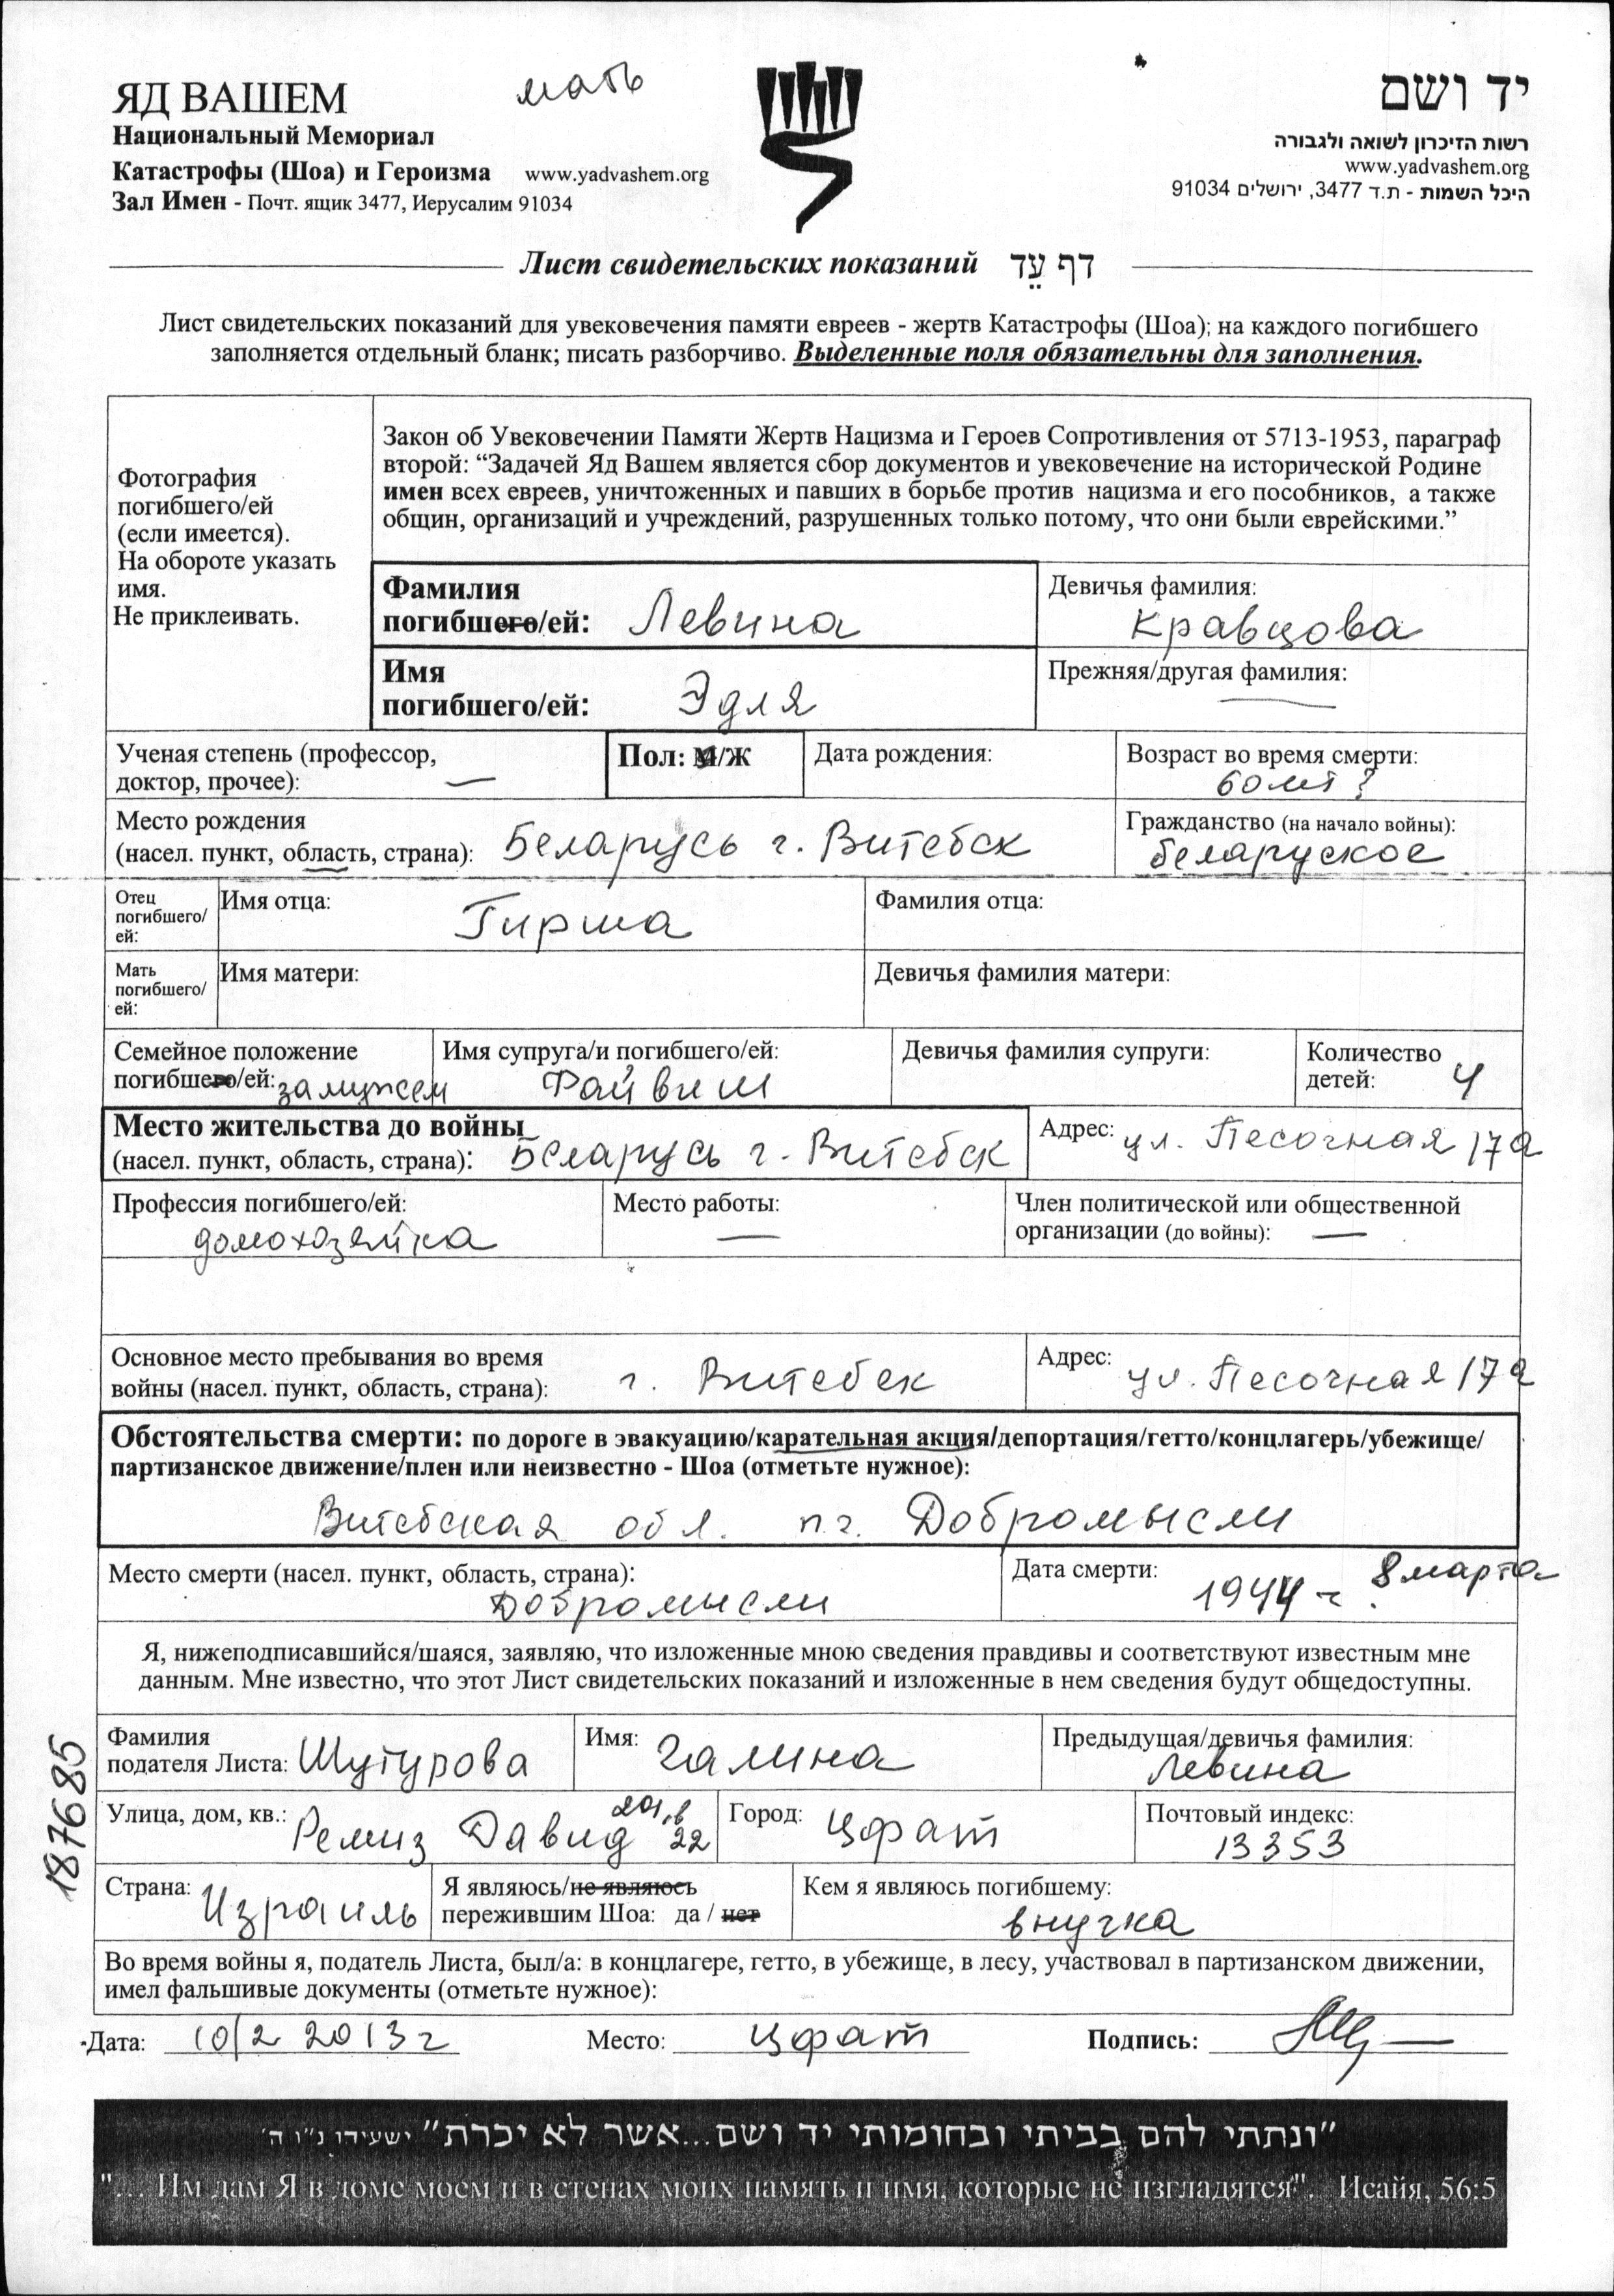 мать
ЯД ВАШЕМ
Национальный Мемориал
Катастрофы (Шоа) и Героизма www.yadvashem.org
Зал Имен - Почт. ящик 3477, Иерусалим 91034
יד ושם
רשות הזיכרון לשואה ולגבורה
www.yadvashem.org
היכל השמות - ת.ד 3477, ירושלים 91034
Лист свидетельских показаний דף עֵד
Лист свидетельских показаний для увековечения памяти евреев - жертв Катастрофы (Шоа); на каждого погибшего
заполняется отдельный бланк; писать разборчиво. Выделенные поля обязательны для заполнения.
Фотография
погибшего/ей
(если имеется).
На обороте указать
имя.
Не приклеивать.
Закон об Увековечении Памяти Жертв Нацизма и Героев Сопротивления от 5713-1953, параграф
второй: “Задачей Яд Вашем является сбор документов и увековечение на исторической Родине
имен всех евреев, уничтоженных и павших в борьбе против нацизма и его пособников, а также
общин, организаций и учреждений, разрушенных только потому, что они были еврейскими.”
Фамилия
погибшего/ей: Левина
Девичья фамилия:
Кравцова
Имя
погибшего/ей: Эдля
Прежняя/другая фамилия:
—
Ученая степень (профессор,
доктор, прочее): —
Пол: М/Ж
Дата рождения:
Возраст во время смерти:
60 лет?
Место рождения
(насел. пункт, область, страна): Беларусь г. Витебск
Гражданство (на начало войны):
беларуское
Отец
погибшего/
ей:
Имя отца:
Гирша
Фамилия отца:
Мать
погибшего/
ей:
Имя матери:
Девичья фамилия матери:
Семейное положение
погибшего/ей: замужем
Имя супруга/и погибшего/ей:
Файвиш
Девичья фамилия супруги:
Количество
детей: 4
Место жительства до войны
(насел. пункт, область, страна): Беларусь г. Витебск
Адрес: ул. Песочная 17а
Профессия погибшего/ей:
домохозяйка
Место работы:
—
Член политической или общественной
организации (до войны): —
Основное место пребывания во время
войны (насел. пункт, область, страна): г. Витебск
Адрес: ул. Песочная 17а
Обстоятельства смерти: по дороге в эвакуацию/карательная акция/депортация/гетто/концлагерь/убежище/
партизанское движение/плен или неизвестно - Шоа (отметьте нужное):
Витебская обл. п.г. Добромысли
Место смерти (насел. пункт, область, страна):
Добромысли
Дата смерти: 8 марта
1944 г.
Я, нижеподписавшийся/шаяся, заявляю, что изложенные мною сведения правдивы и соответствуют известным мне
данным. Мне известно, что этот Лист свидетельских показаний и изложенные в нем сведения будут общедоступны.
Фамилия
подателя Листа: Шутурова
Имя: Галина
Предыдущая/девичья фамилия:
Левина
Улица, дом, кв.: Ремиз Давид 22
Город: Цфат
Почтовый индекс:
13353
Страна: Израиль
Я являюсь/не являюсь
пережившим Шоа: да / нет
Кем я являюсь погибшему:
внучка
Во время войны я, податель Листа, был/а: в концлагере, гетто, в убежище, в лесу, участвовал в партизанском движении,
имел фальшивые документы (отметьте нужное):
Дата: 10/2 2013 г
Место: Цфат
Подпись:
187685
"ונתתי להם בביתי ובחומותי יד ושם...אשר לא יכרת" ישעיהו נ"ו ה'
"... Им дам Я в доме моем и в стенах моих память и имя, которые не изгладятся". Исайя, 56:5